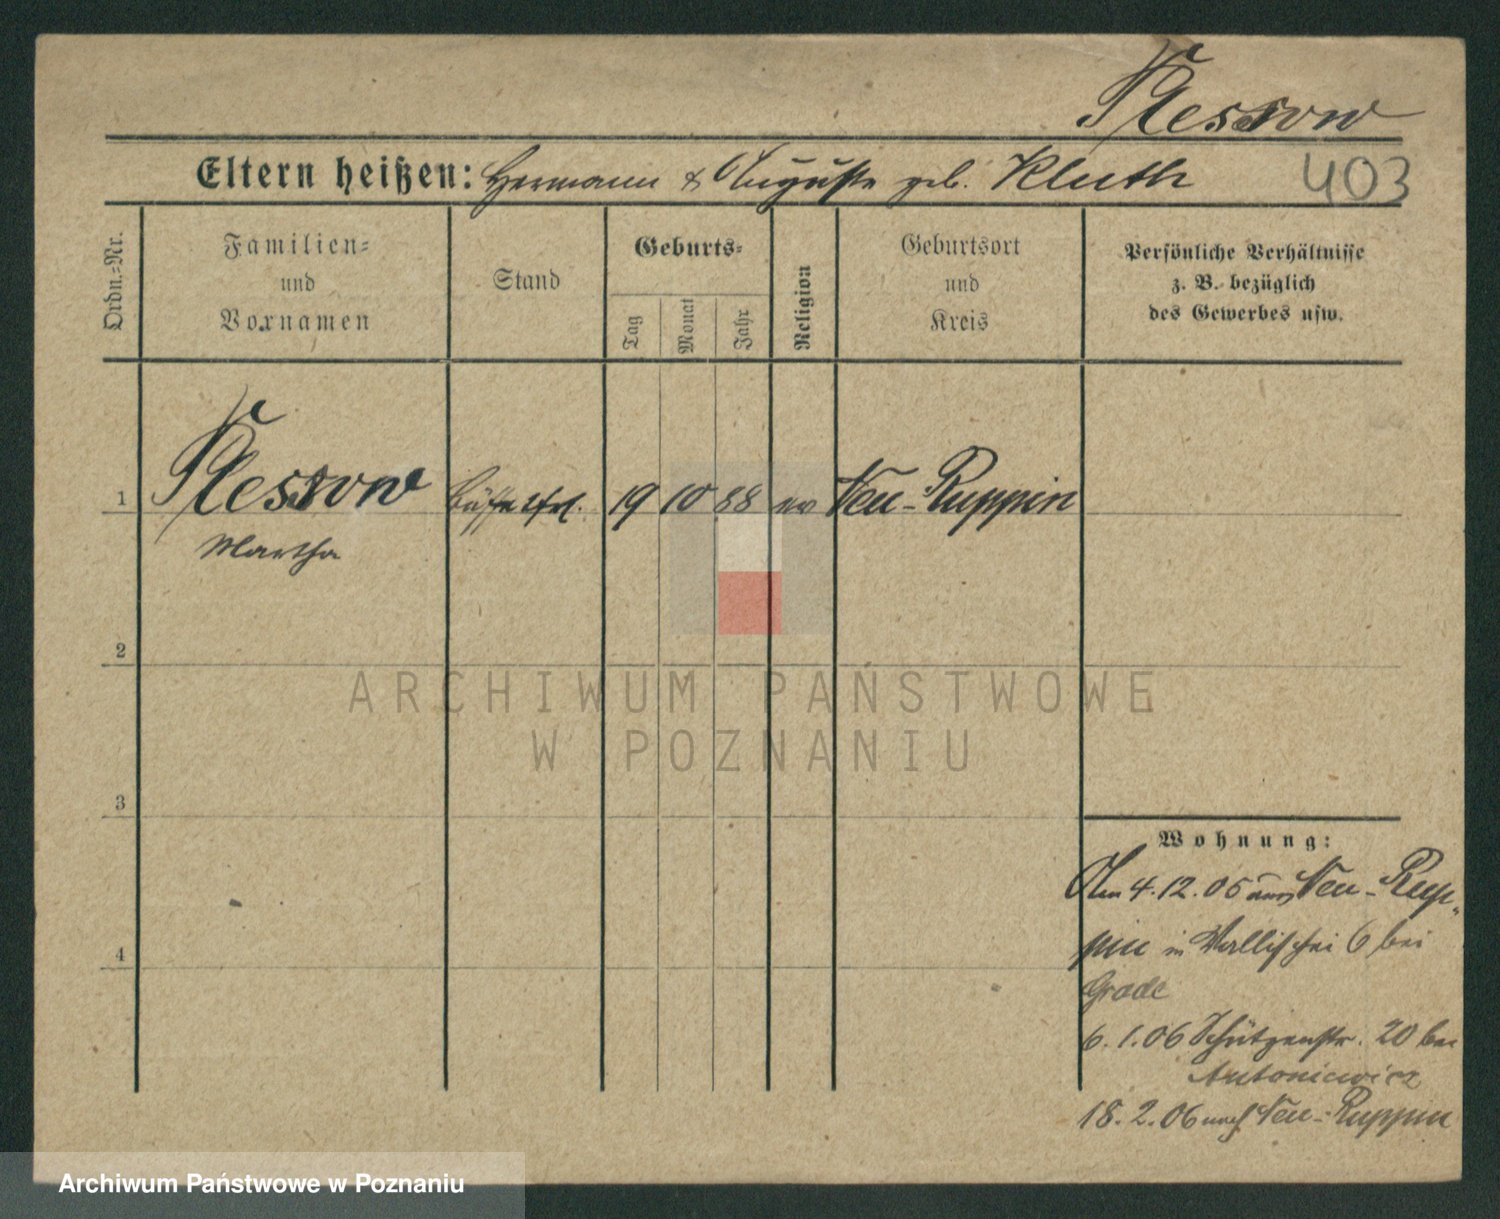 Plessow
Eltern heißen: Hermann & Auguste geb. Kluth
403
Ordn.-Nr.
Familien-
und
Vornamen
Stand
Geburts-
Tag
Monat
Jahr
Religion
Geburtsort
und
Kreis
Persönliche Verhältnisse
z. B. bezüglich
des Gewerbes usw.
1
Plessow
Büffetfrl.
19
10
88
ev
Neu-Ruppin
Martha
2
ARCHIWUM PAŃSTWOWE
W POZNANIU
3
Wohnung:
Am 4.12.05 aus Neu-Rup-
pin in Wallischei 6 bei
Grade
6.1.06 Schützenstr. 20 bei
Antoniewicz
18.2.06 nach Neu-Ruppin
4
Archiwum Państwowe w Poznaniu